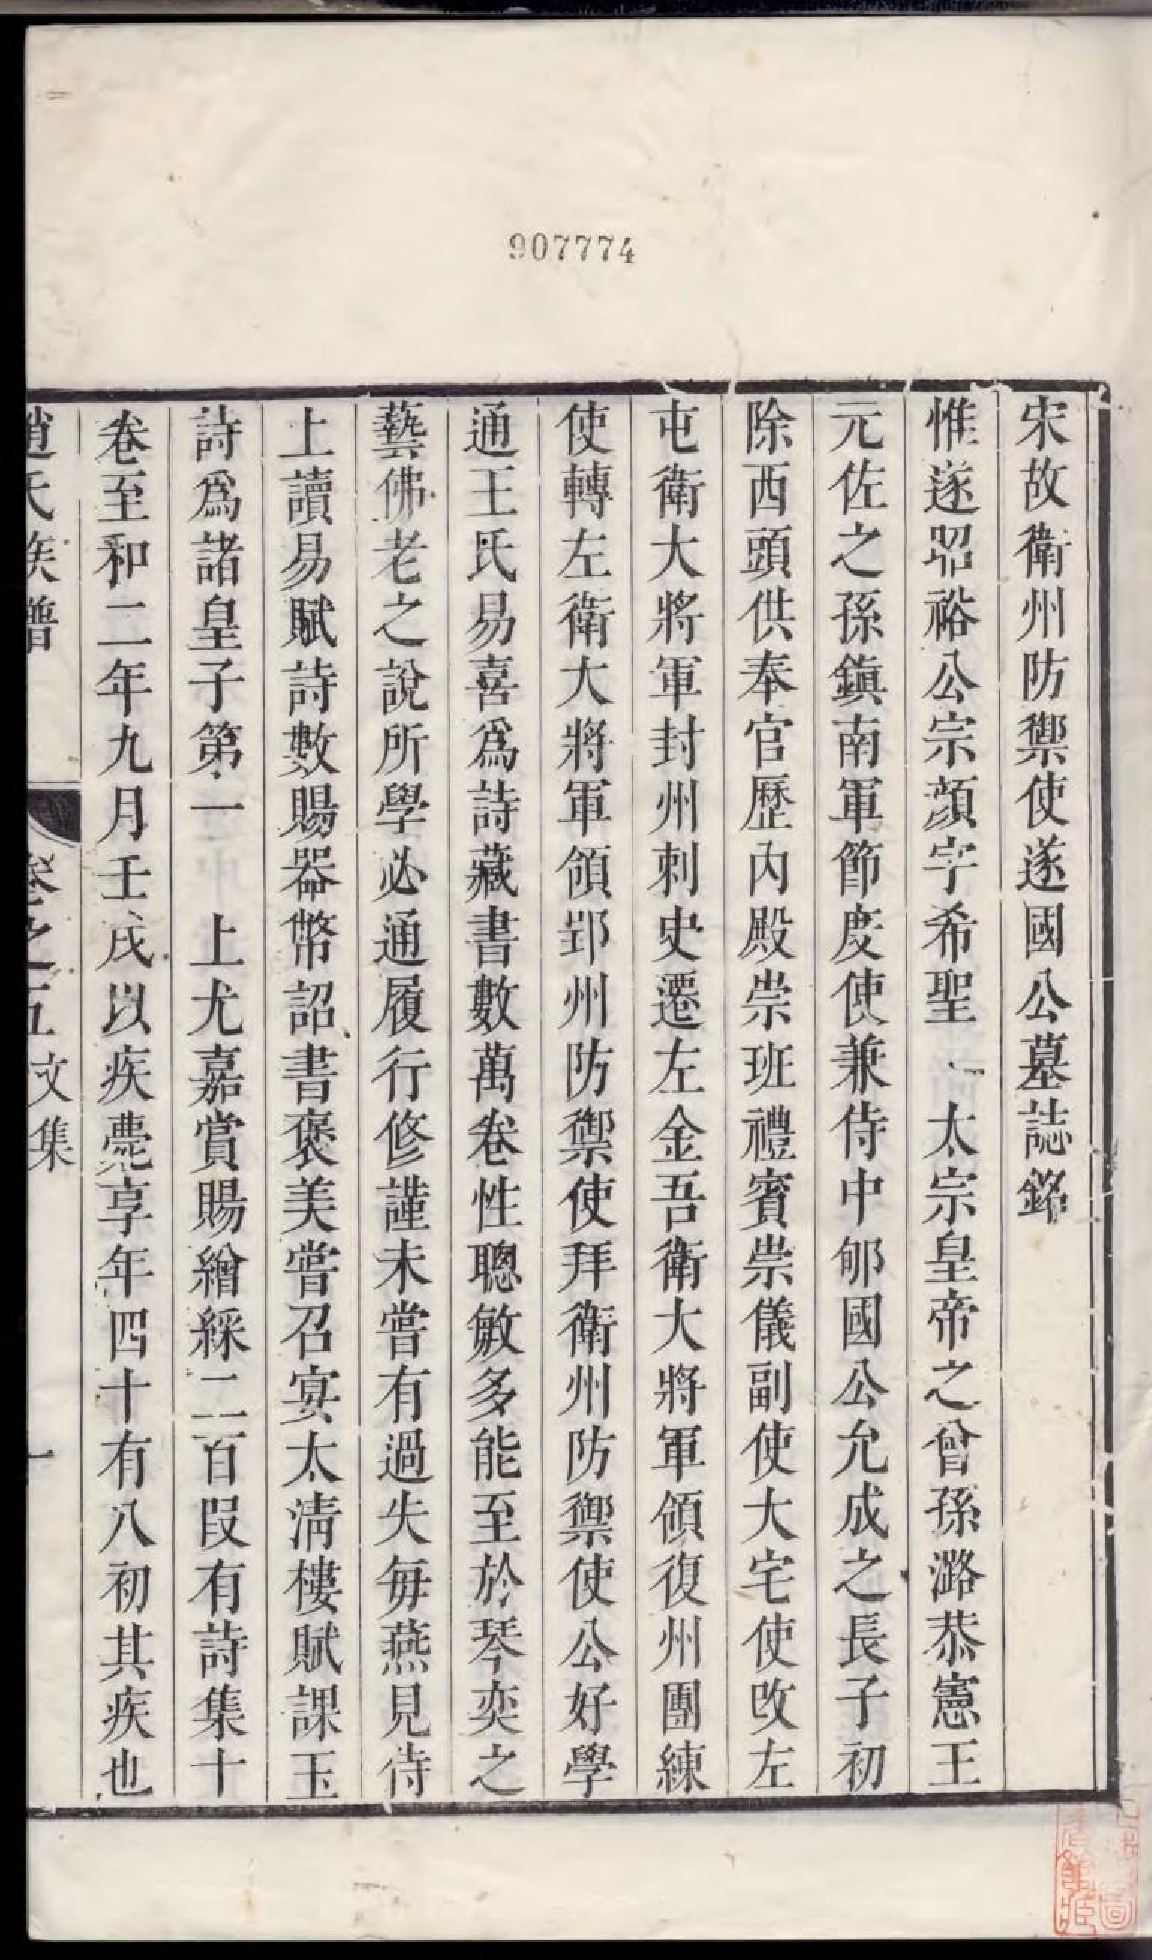 907774
宋故衛州防禦使遂國公墓誌銘
惟遂昭裕公宗顔字希聖 太宗皇帝之曾孫潞恭憲王
元佐之孫鎮南軍節度使兼侍中郇國公允成之長子初
除西頭供奉官歷內殿崇班禮賓崇儀副使大宅使改左
屯衛大將軍封州刺史遷左金吾衛大將軍領復州團練
使轉左衛大將軍領郢州防禦使拜衛州防禦使公好學
通王氏易喜爲詩藏書數萬卷性聰敏多能至於琴奕之
藝佛老之說所學必通履行修謹未嘗有過失每燕見侍
上讀易賦詩數賜器幣詔書褒美嘗召宴太清樓賦課玉
詩爲諸皇子第一 上尤嘉賞賜繒綵二百段有詩集十
卷至和二年九月壬戌以疾薨享年四十有八初其疾也
趙氏族譜 卷之五 文集 一